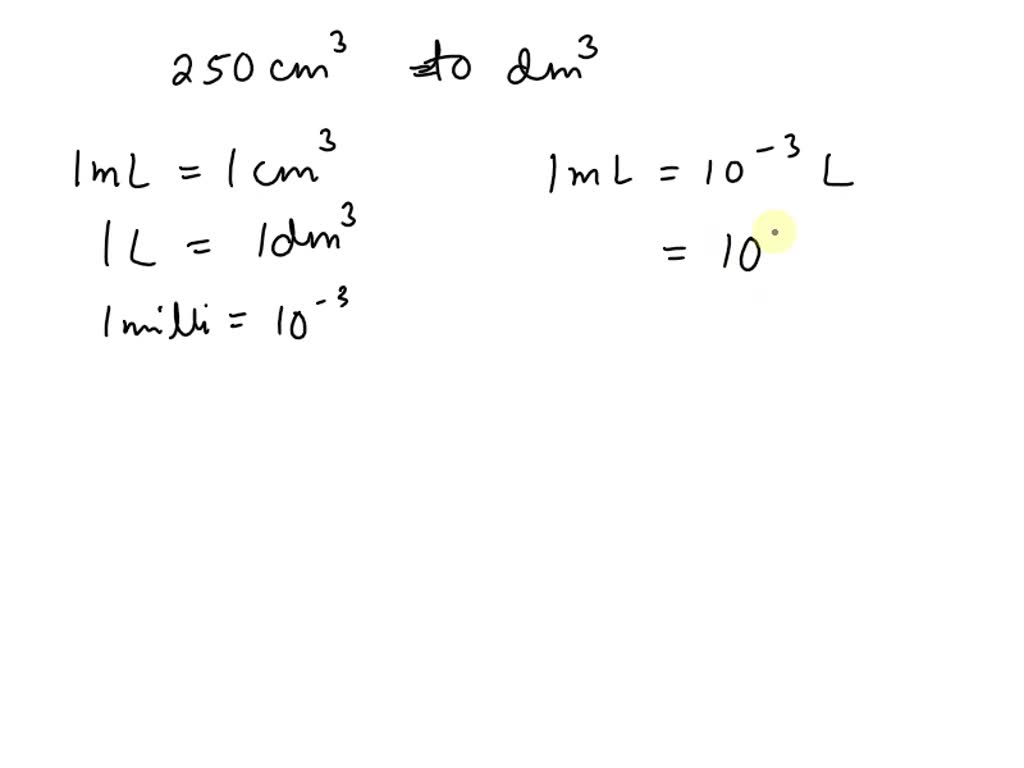 250 cm³ to dm³
1mL = 1 cm³
1L = 1dm³
1milli = 10⁻³
1mL = 10⁻³ L
= 10